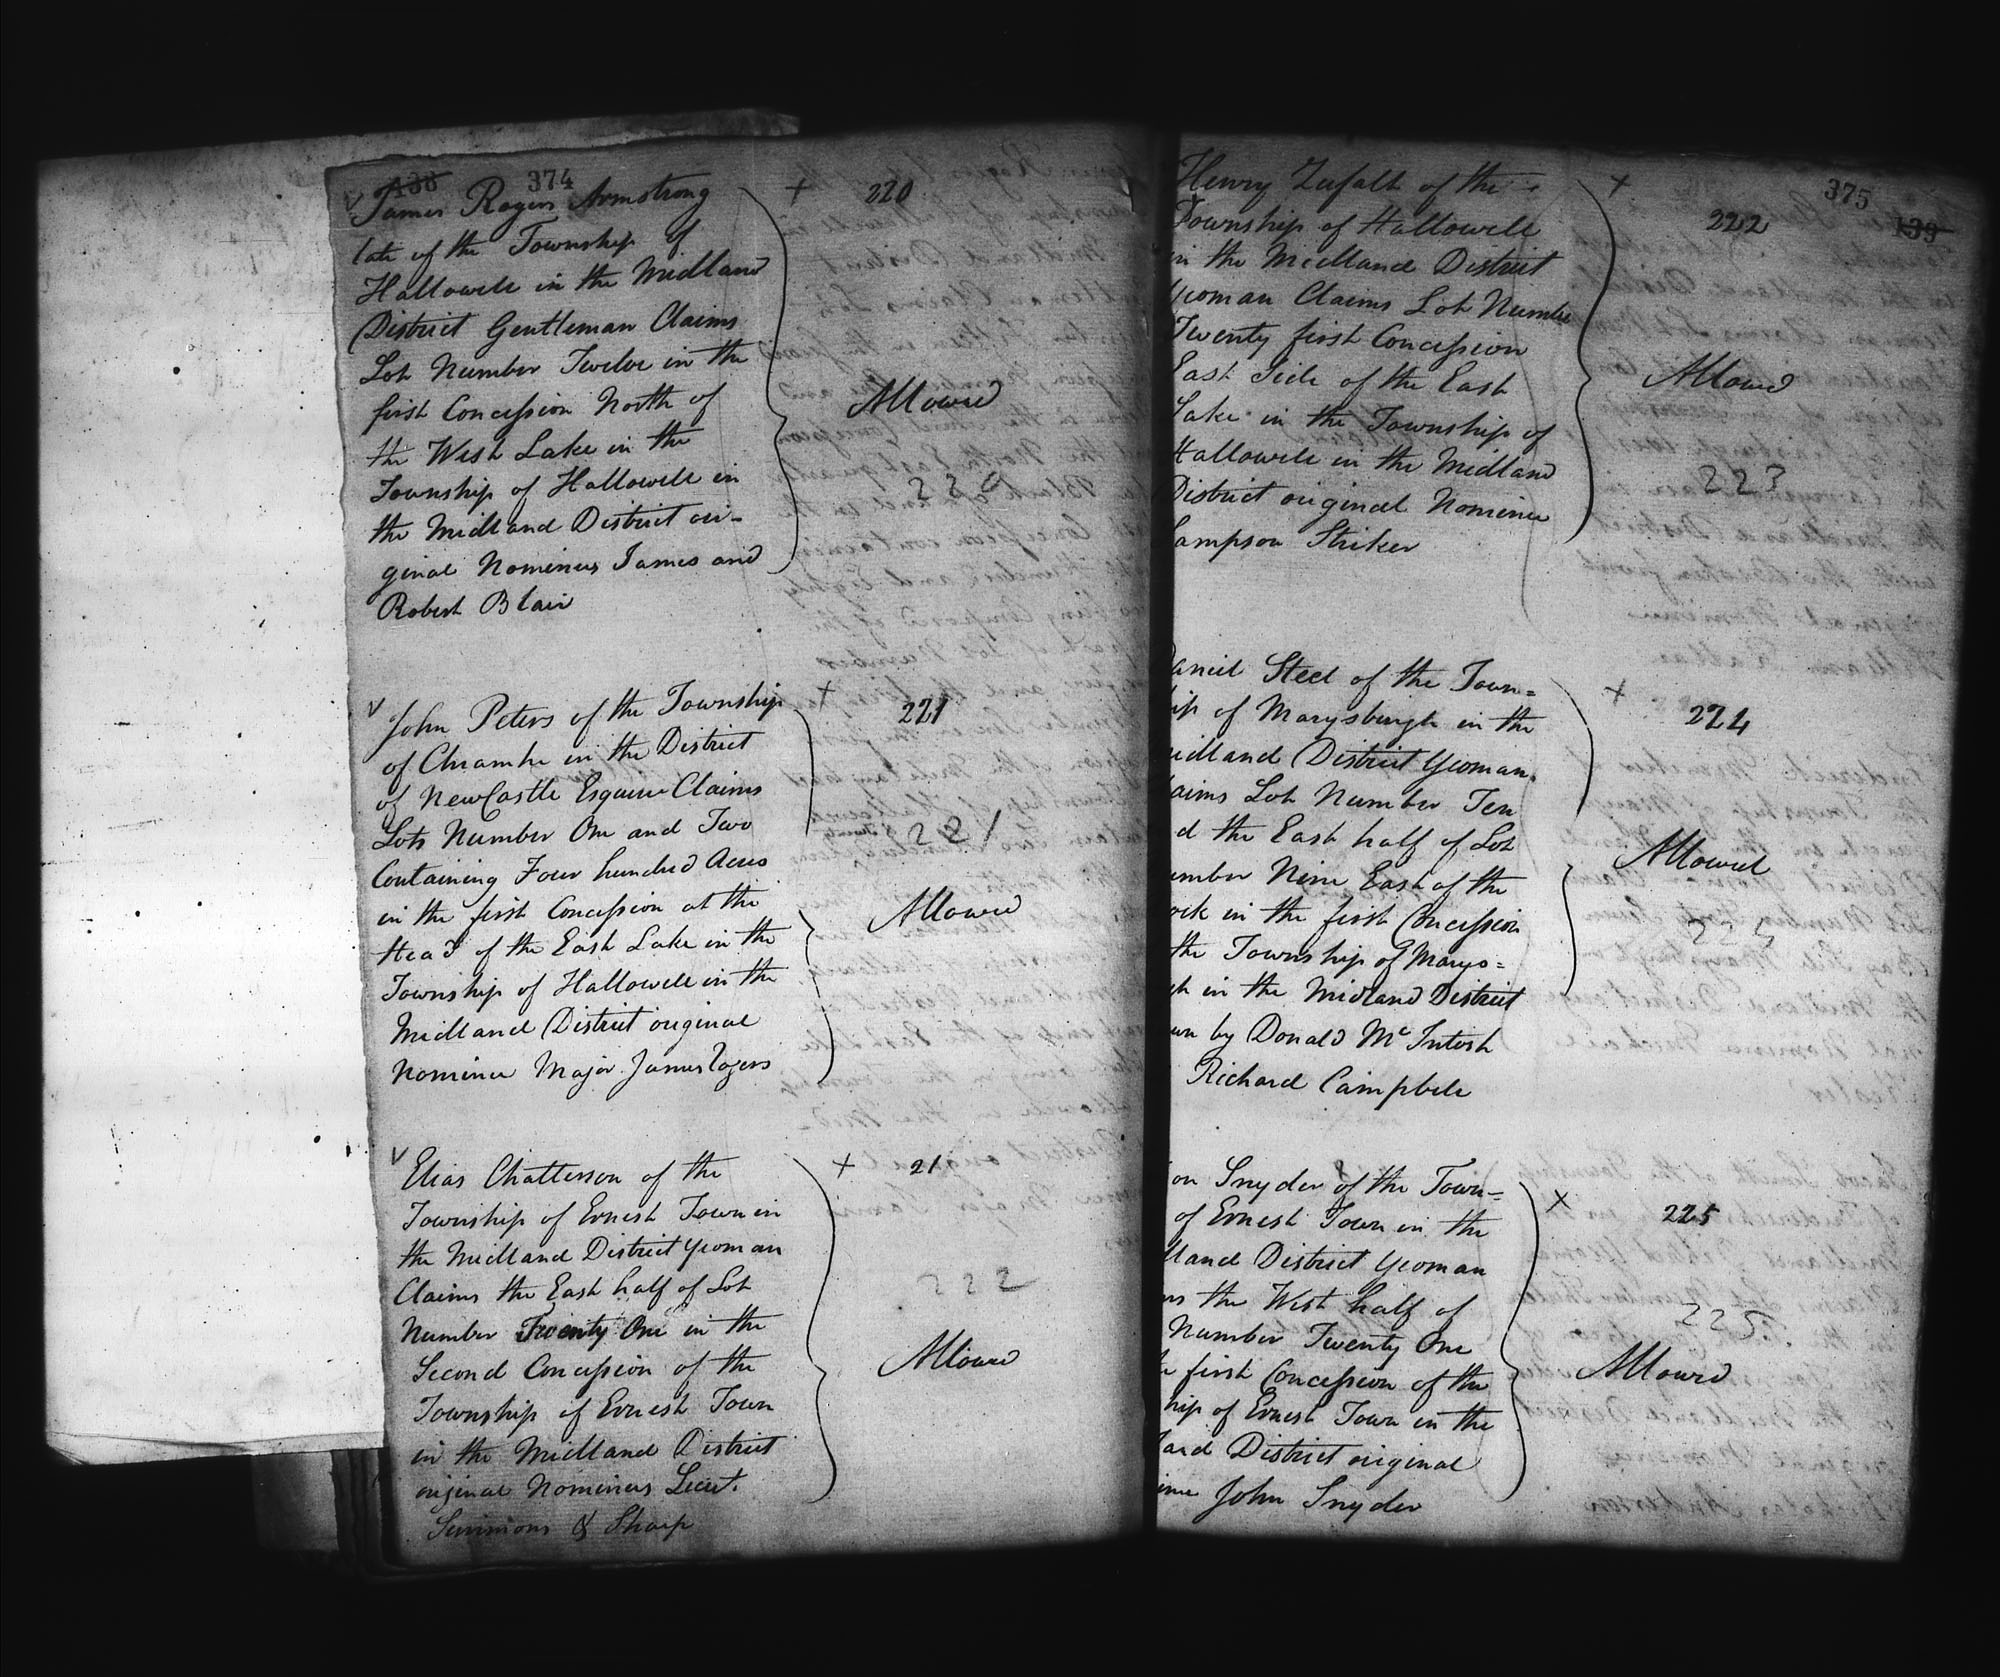 138 374
James Rogers Armstrong
late of the Township of
Hallowell in the Midland
District Gentleman Claims
Lot Number Twelve in the
first Concession North of
the West Lake in the
Township of Hallowell in
the Midland District ori-
ginal Nominees James and
Robert Blair
+ 220
Allowed
220
John Peters of the Township
of Chramhe in the District
of NewCastle Esquire Claims
Lots Number One and Two
Containing Four hundred Acres
in the first Concession at the
Head of the East Lake in the
Township of Hallowell in the
Midland District original
Nominee Major James Rogers
+ 221
221
Allowed
Elias Chatterson of the
Township of Ernest Town in
the Midland District Yeoman
Claims the East half of Lot
Number Twenty One in the
Second Concession of the
Township of Ernest Town
in the Midland District
original Nominees Lieut.
Simmons & Sharp
+ 21
222
Allowed
375
139
Henry Zufalt of the
Township of Hallowell
in the Midland District
Yeoman Claims Lot Number
Twenty first Concession
East Side of the East
Lake in the Township of
Hallowell in the Midland
District original Nominee
Sampson Striker
+ 222
Allowed
223
aniel Steel of the Town=
ip of Marysburgh in the
idland District Yeoman
laims Lot Number Ten
d the East half of Lot
umber Nine East of the
ock in the first Concession
the Township of Marys=
gh in the Midland District
wn by Donald Mc Intosh
Richard Campbell
+ 224
Allowed
224
on Snyder of the Town=
of Ernest Town in the
dland District Yeoman
ms the West half of
Number Twenty One
e first Concession of the
hip of Ernest Town in the
land District original
inee John Snyder
× 225
225
Allowed